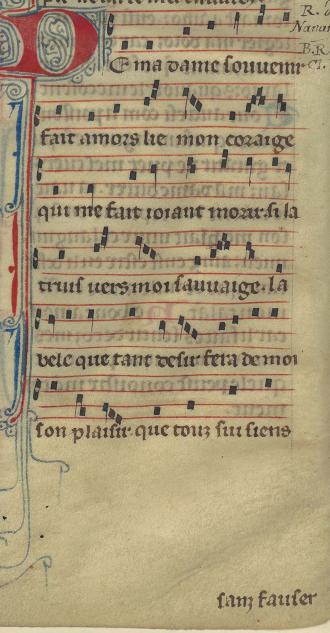 E ma dame souvenir
fait amors lie mon coraige
qui me fait ioiant morir. si la
truis vers moi sauvaige. la
bele que tant desir fera de moi
son plaisir que touz sui siens
sanz fauser